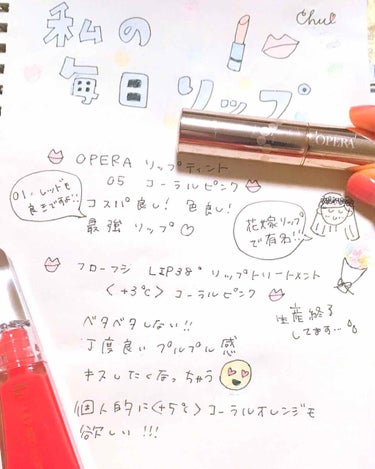 Chu!
私の
毎日リップ
OPERA
OPERA リップティント
05 コーラルピンク
01.レッドも
良きですよ!!
コスパ良し! 色良し!
最強リップ♡
花嫁リップ
で有名!!
フローフシ LIP38° リップトリートメント
<+3℃> コーラルピンク
生産終了
してます…
ベタベタしない!!
丁度良いプルプル感
キスしたくなっちゃう
個人的に<+5℃>コーラルオレンジも
欲しい!!!